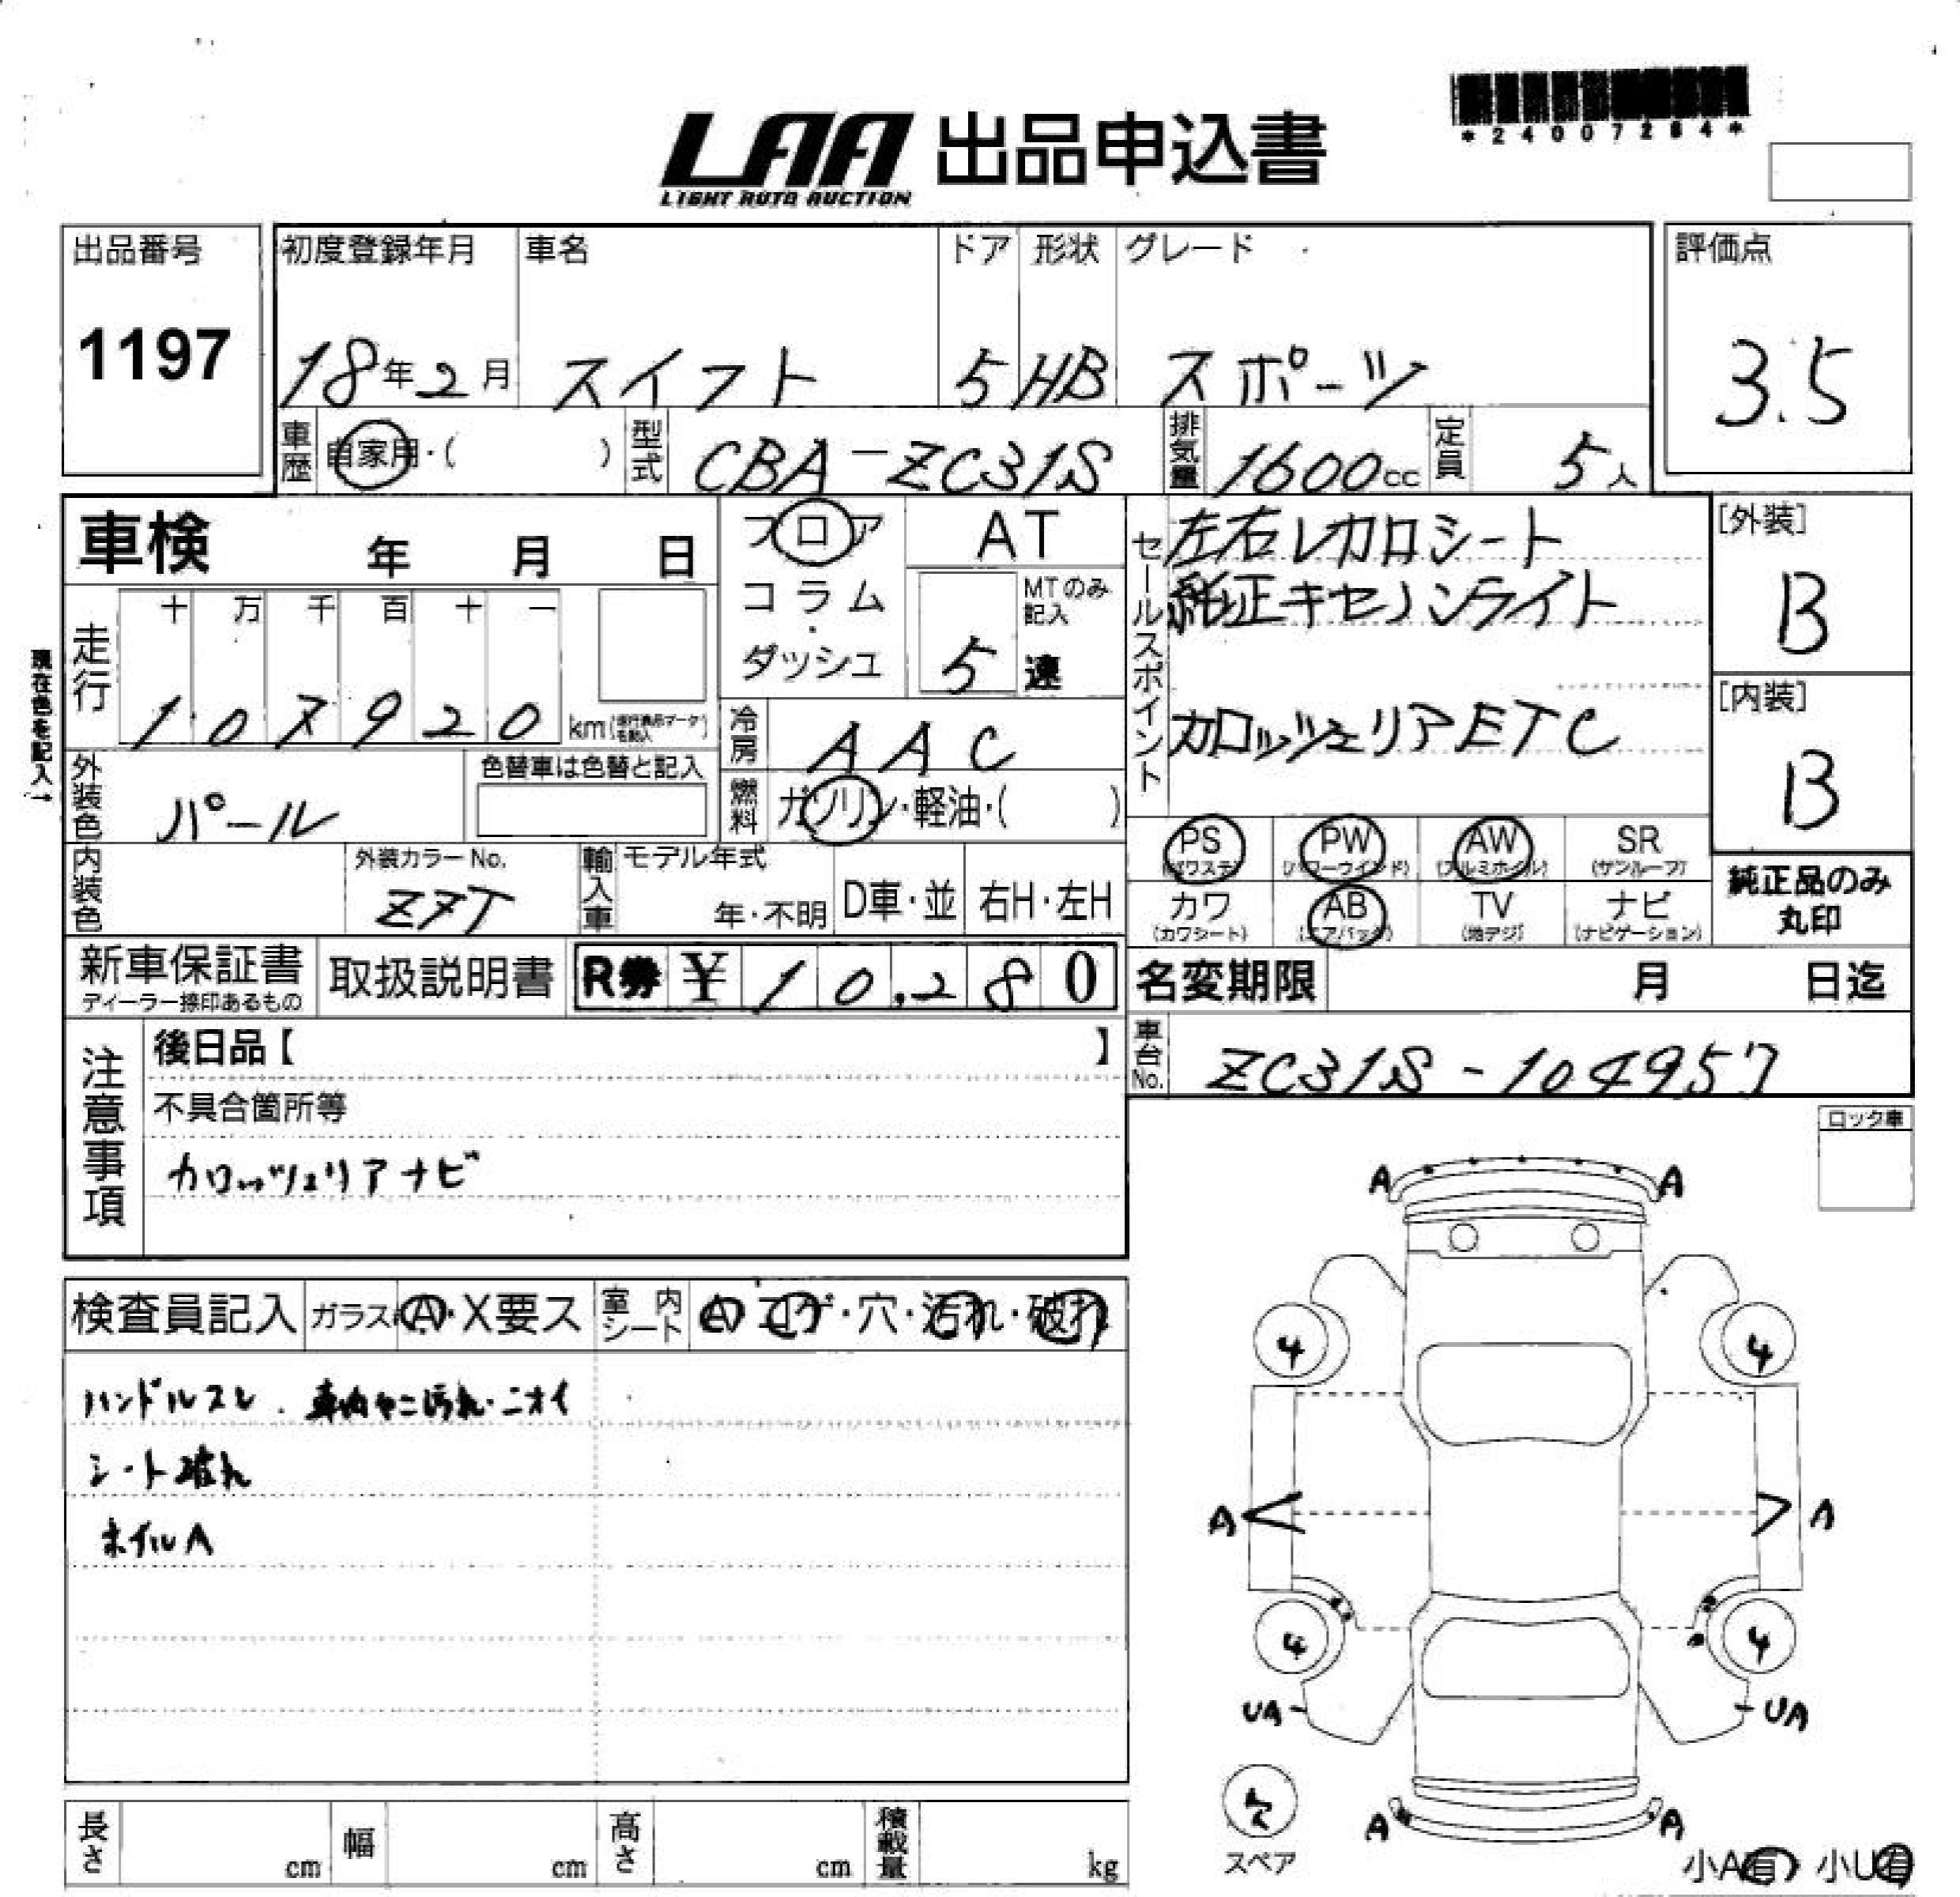 *24007284*
LAA 出品申込書
LIGHT AUTO AUCTION
出品番号 初度登録年月 車名 ドア 形状 グレード 評価点
1197 18年2月 スイフト 5 HB スポーツ 3.5
車歴 自家用・( ) 型式 CBA-ZC31S 排気量 1600cc 定員 5人
車検 年 月 日 フロア AT セールスポイント 左右レカロシート [外装]
コラム・ MTのみ記入 純正キセノンライト B
走行 十 万 千 百 十 一
ダッシュ 5速
107920 km 冷房 AAC カロッツェリアETC [内装]
現在色を記入→
外装色 パール 色替車は色替と記入 燃料 ガソリン・軽油・( ) B
PS (パワステ) PW (パワーウインド) AW (アルミホイル) SR (サンルーフ)
内装色 外装カラーNo. Z7T 輸入車 モデル年式 年・不明 D車・並 右H・左H
カワ (カワシート) AB (エアバック) TV (地デジ) ナビ (ナビゲーション) 純正品のみ丸印
新車保証書 取扱説明書 R券 ¥10.280 名変期限 月 日迄
ディーラー捺印あるもの
注意事項 後日品【 】 車台No. ZC31S-104957
不具合箇所等 ロック車
カロッツェリアナビ
A A
検査員記入 ガラス A・X要ス 室内シート A コゲ・穴・汚れ・破れ
4 4
ハンドルスレ. 車内ヤニ汚れ・ニオイ
シート破れ
A A
ホイルA
4 4
UA UA
A A
長さ cm 幅 cm 高さ cm 積載量 kg スペア 小A有 小U有